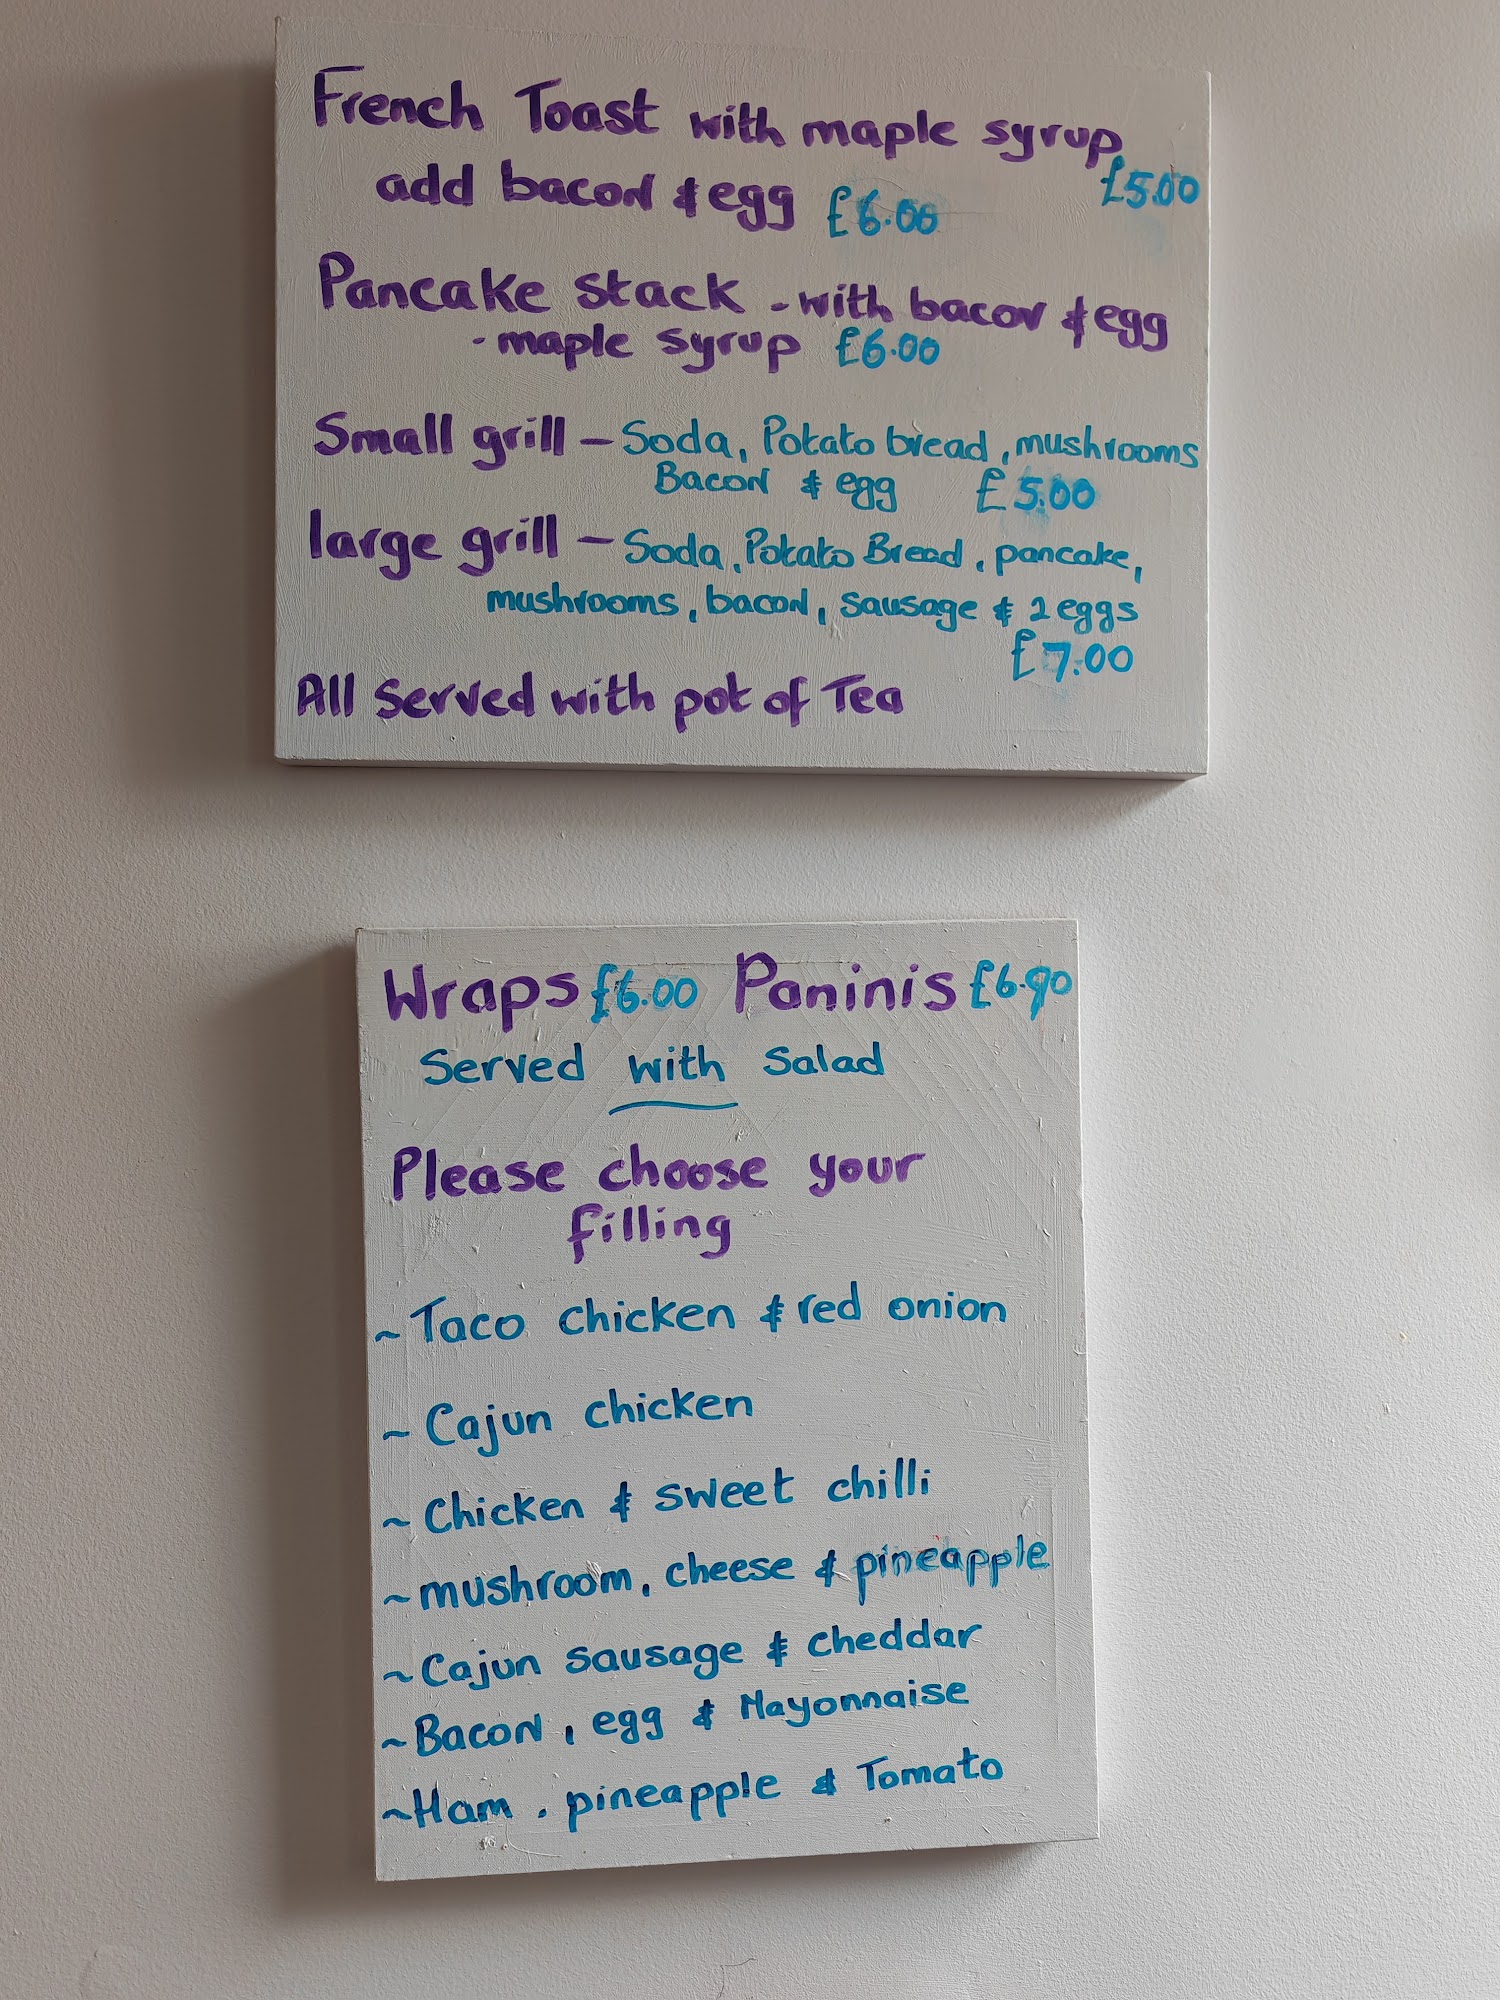 French Toast with maple syrup
£5.00
add bacon & egg £6.00
Pancake stack - with bacon & egg
- maple syrup £6.00
Small grill – Soda, Potato bread, mushrooms
Bacon & egg £5.00
large grill – Soda, Potato Bread, pancake,
mushrooms, bacon, sausage & 2 eggs
£7.00
All Served with pot of Tea
Wraps £6.00 Paninis £6.90
Served with Salad
Please choose your
filling
~ Taco chicken & red onion
~ Cajun chicken
~ Chicken & sweet chilli
~ mushroom, cheese & pineapple
~ Cajun sausage & cheddar
~ Bacon, egg & Mayonnaise
~ Ham. pineapple & Tomato